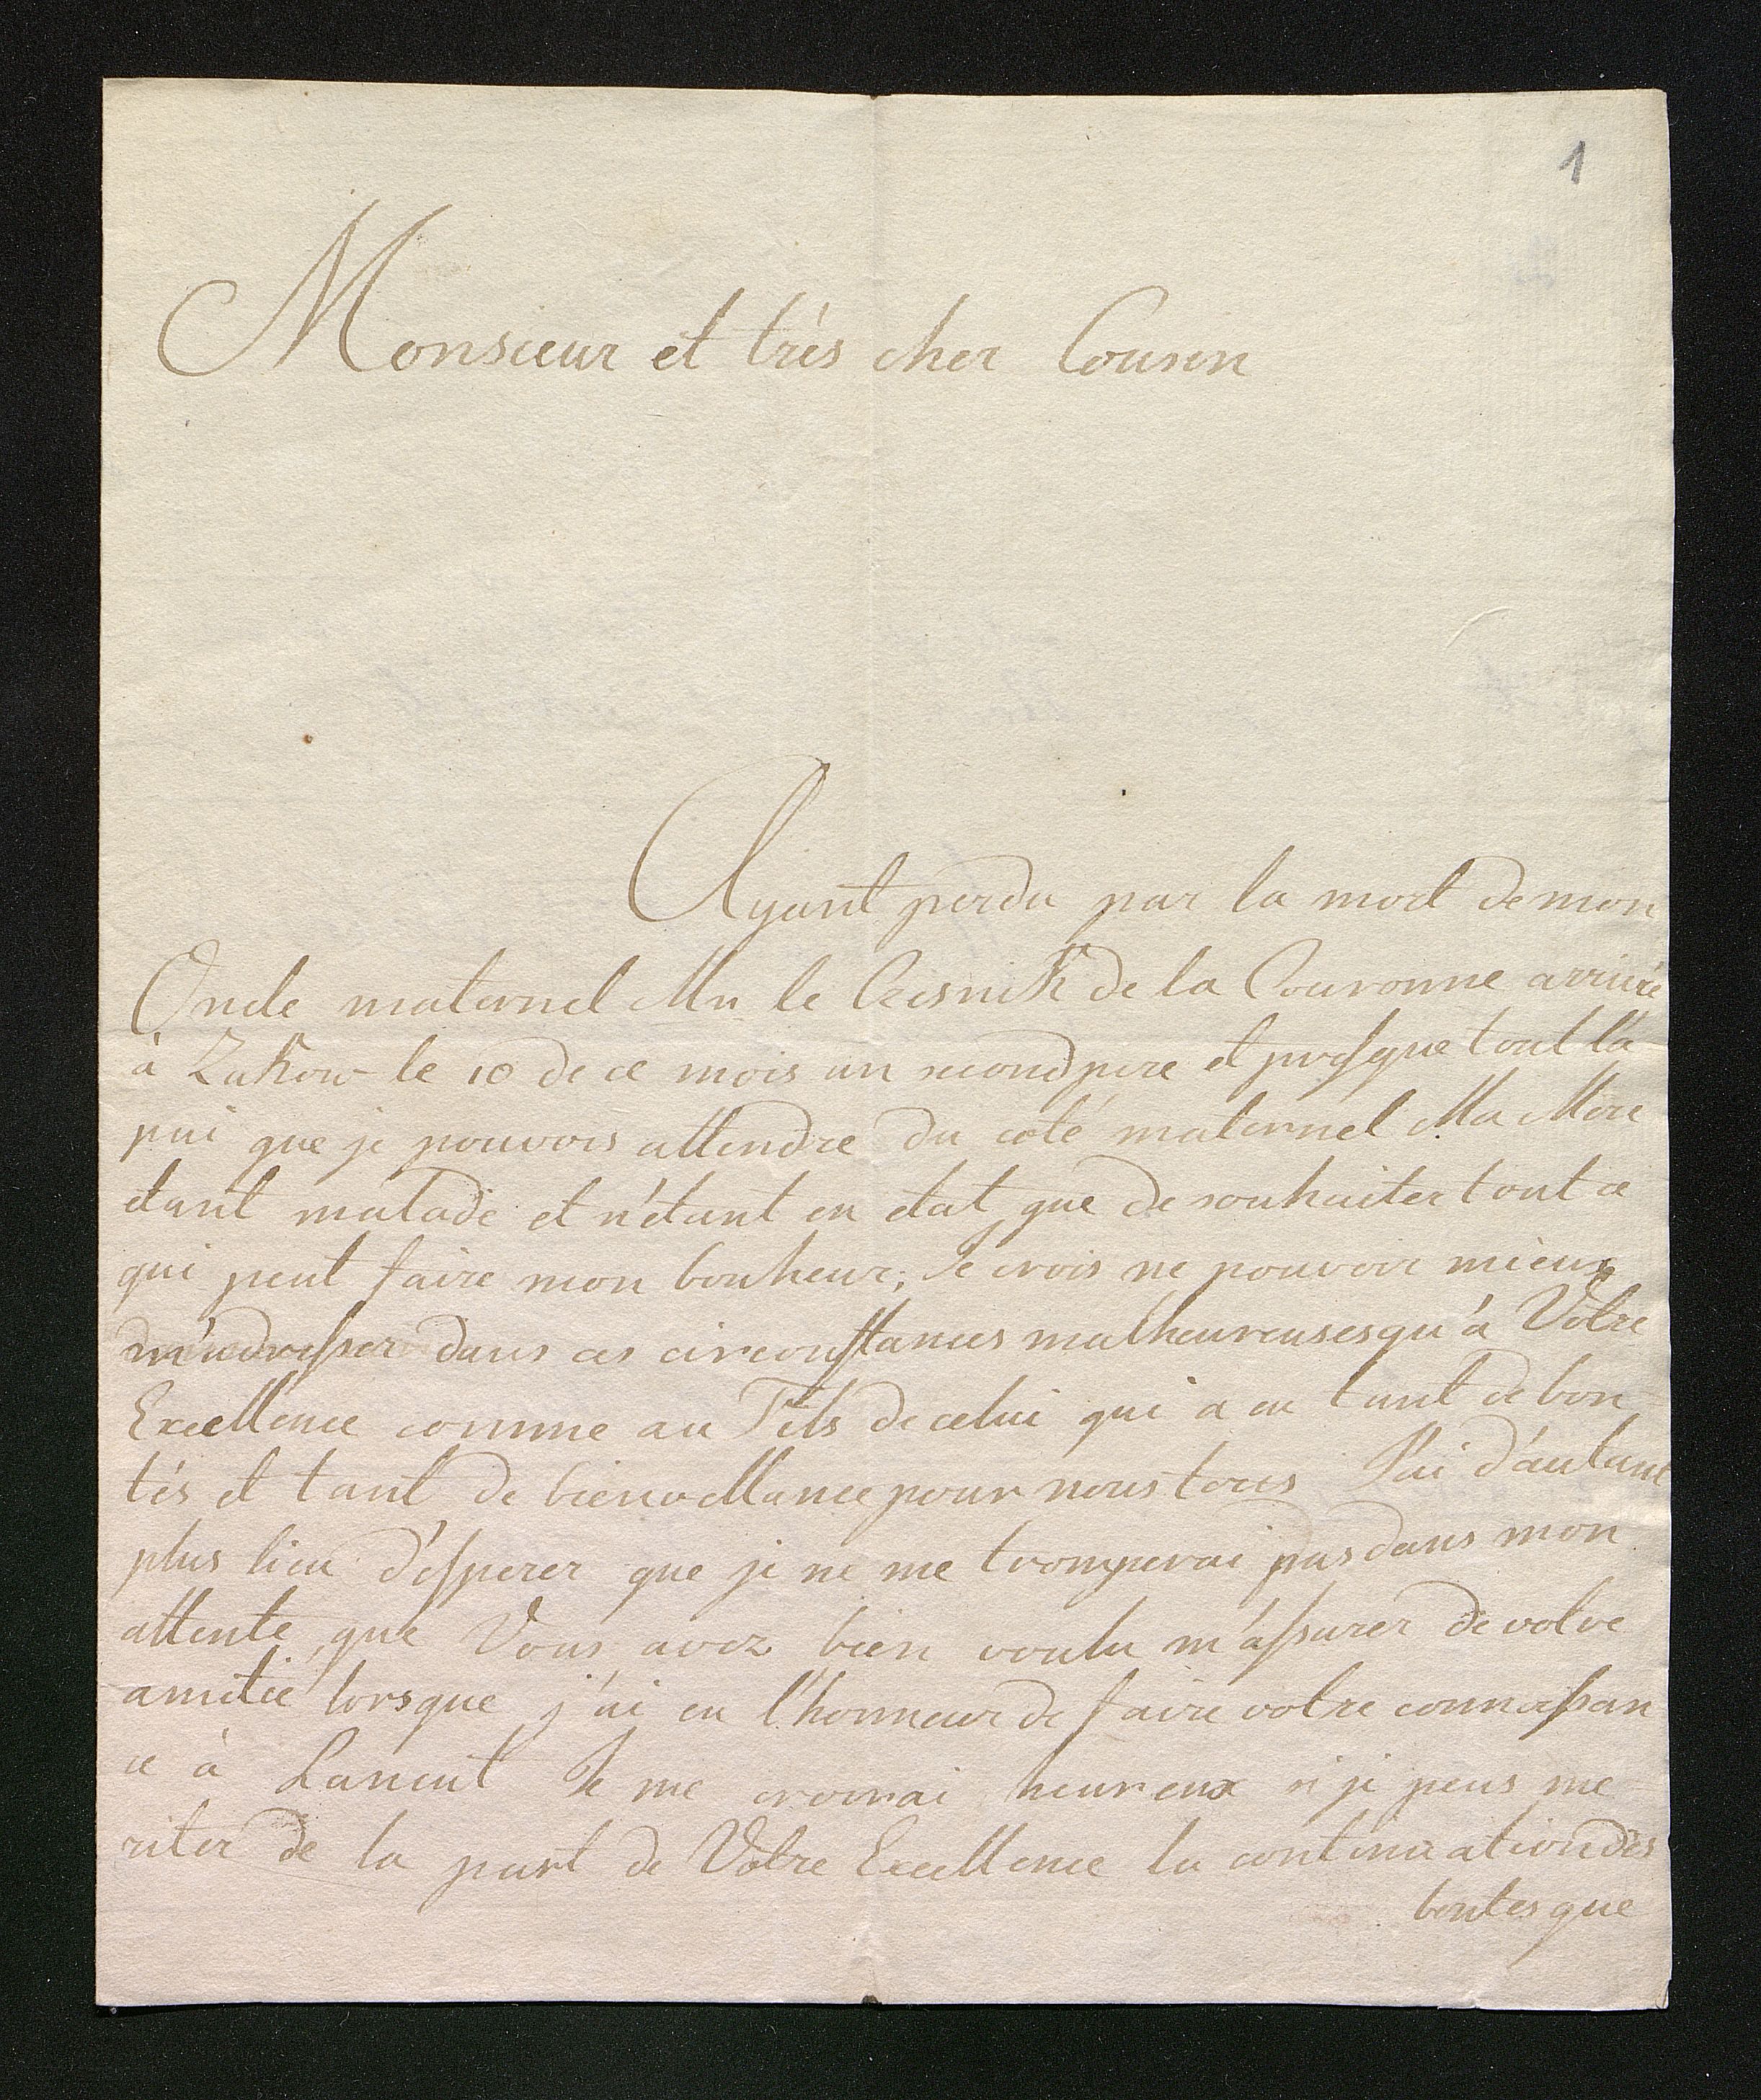 1
Monsieur et très cher Cousin
Ayant perdu par la mort de mon
Oncle maternel Mr le Czesnik de la Couronne arrivée
à Zukow le 10 de ce mois un second pere et presque tout l'a
pui que je pouvois attendre du coté maternel Ma Mere
etant malade et n'étant en etat que de souhaiter tout ce
qui peut faire mon bonheur; Je crois ne pouvoir mieux
m'adresser dans ces circonstances malheureuses qu'à Votre
Excellence comme au Fils de celui qui a eu tant de bon
tés et tant de bienvellance pour nous tous J'ai d'autant
plus lieu d'esperer que je ne me tromperai pas dans mon
attente, que Vous avez bien voulu m'assurer de votre
amitié lorsque j'ai eu l'honneur de faire votre connaissan
ce à Lancut Je me croirai heureux si je peus me
riter de la part de Votre Excellence la continuation des
bontes que